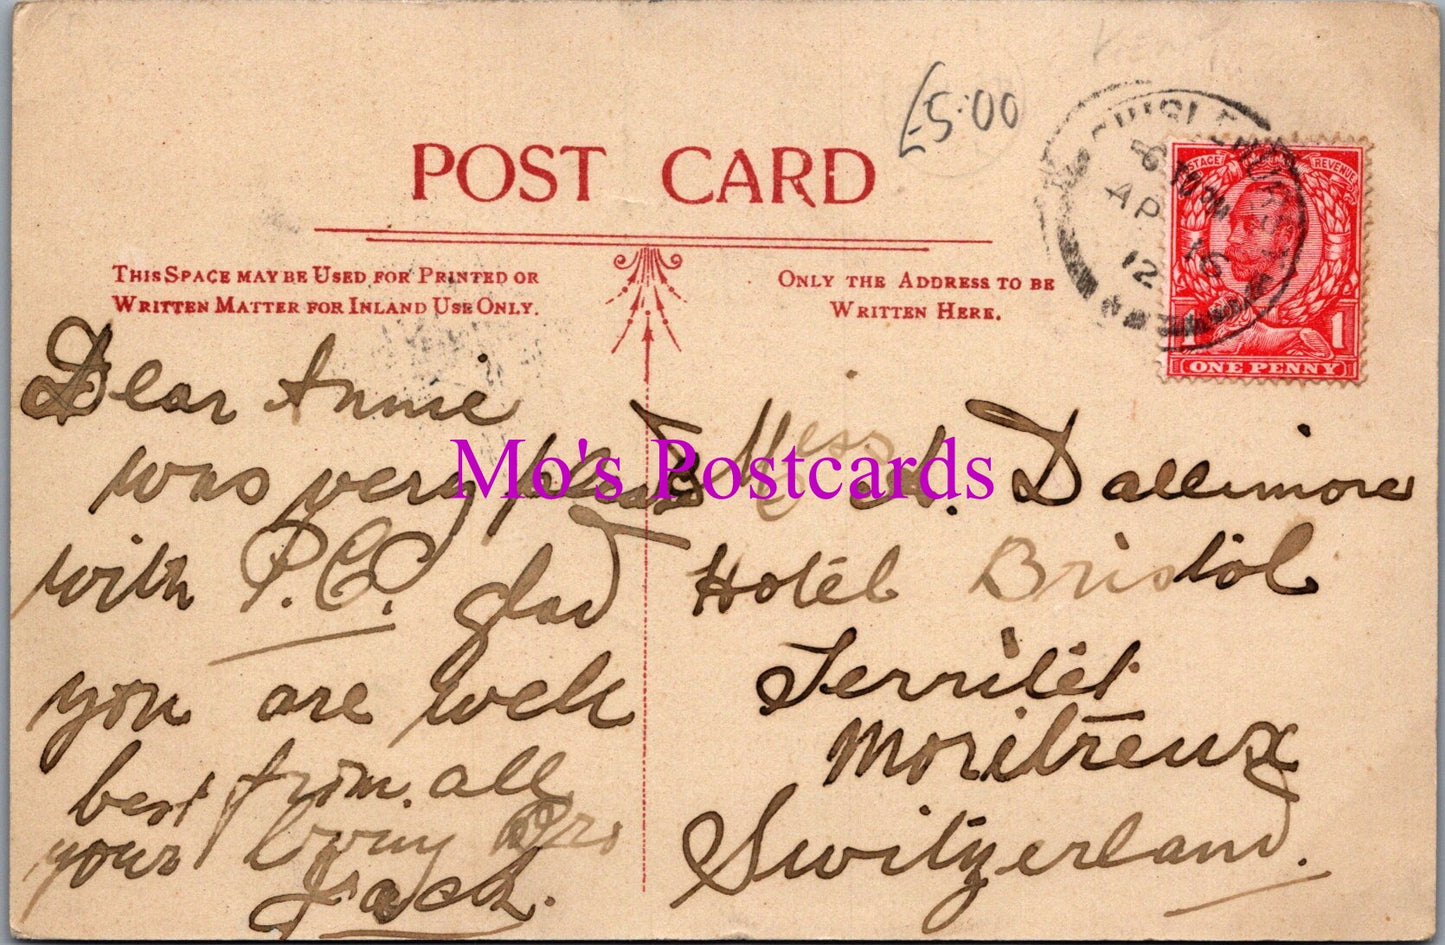 £5.00
POST CARD
THIS SPACE MAY BE USED FOR PRINTED OR
WRITTEN MATTER FOR INLAND USE ONLY.
ONLY THE ADDRESS TO BE
WRITTEN HERE.
CHISLEHURST
AP 16
12
POSTAGE REVENUE
1 1
ONE PENNY
Dear Annie
was very pleased
with P.C. glad
you are well
best from all
your loving Bro
Jack.
Mo's Postcards
Miss A. Dallimore
Hotél Bristol
Territét
Montreux
Switzerland.